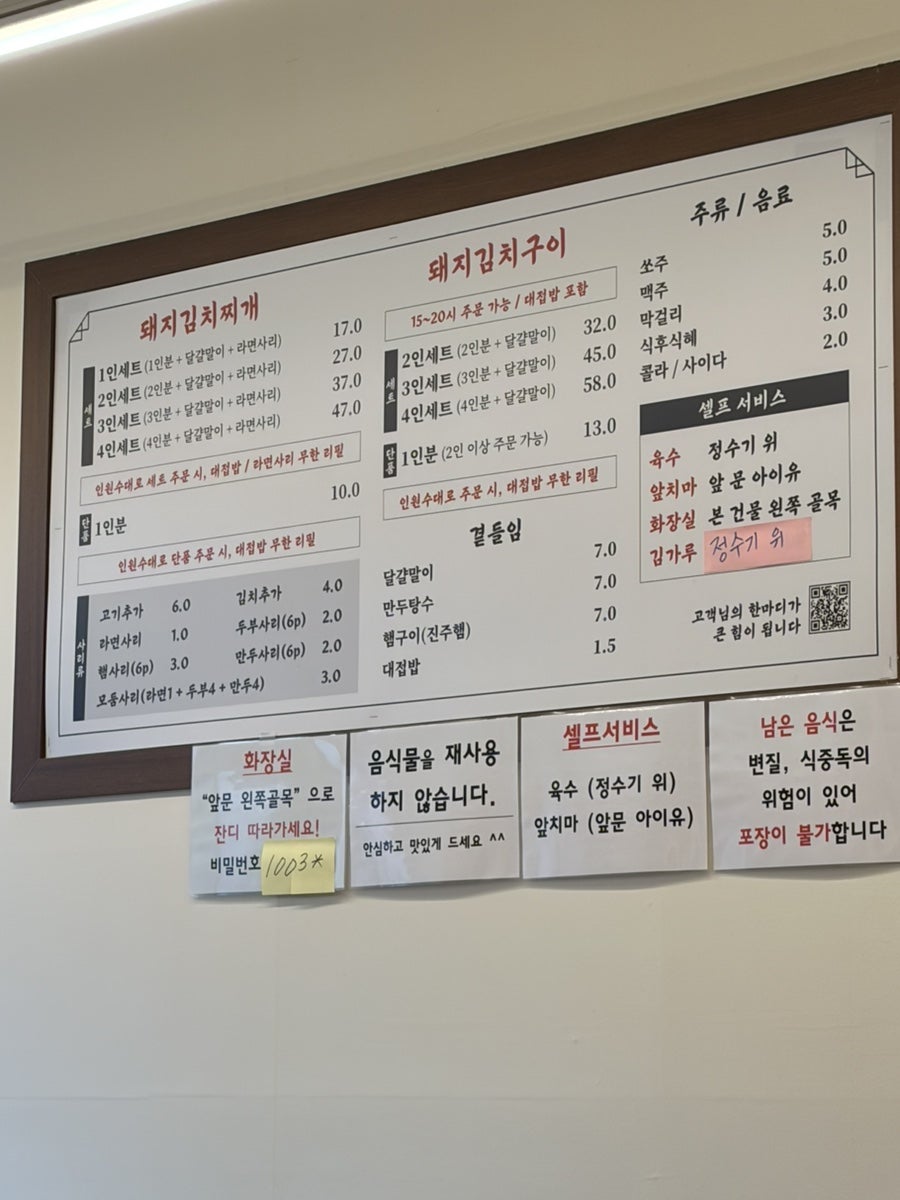 돼지김치찌개
세트
1인세트 (1인분 + 달걀말이 + 라면사리) 17.0
2인세트 (2인분 + 달걀말이 + 라면사리) 27.0
3인세트 (3인분 + 달걀말이 + 라면사리) 37.0
4인세트 (4인분 + 달걀말이 + 라면사리) 47.0
인원수대로 세트 주문 시, 대접밥 / 라면사리 무한 리필
단품
1인분 10.0
인원수대로 단품 주문 시, 대접밥 무한 리필
사리류
고기추가 6.0 김치추가 4.0
라면사리 1.0 두부사리(6p) 2.0
햄사리(6p) 3.0 만두사리(6p) 2.0
모둠사리(라면1 + 두부4 + 만두4) 3.0
돼지김치구이
15~20시 주문 가능 / 대접밥 포함
세트
2인세트 (2인분 + 달걀말이) 32.0
3인세트 (3인분 + 달걀말이) 45.0
4인세트 (4인분 + 달걀말이) 58.0
단품
1인분 (2인 이상 주문 가능) 13.0
인원수대로 주문 시, 대접밥 무한 리필
곁들임
달걀말이 7.0
만두탕수 7.0
햄구이(진주햄) 7.0
대접밥 1.5
주류 / 음료
쏘주 5.0
맥주 5.0
막걸리 4.0
식후식혜 3.0
콜라 / 사이다 2.0
셀프 서비스
육수 정수기 위
앞치마 앞 문 아이유
화장실 본 건물 왼쪽 골목
김가루 정수기 위
고객님의 한마디가
큰 힘이 됩니다
화장실
“앞문 왼쪽골목” 으로
잔디 따라가세요!
비밀번호 1003*
음식물을 재사용
하지 않습니다.
안심하고 맛있게 드세요 ^^
셀프서비스
육수 (정수기 위)
앞치마 (앞문 아이유)
남은 음식은
변질, 식중독의
위험이 있어
포장이 불가합니다